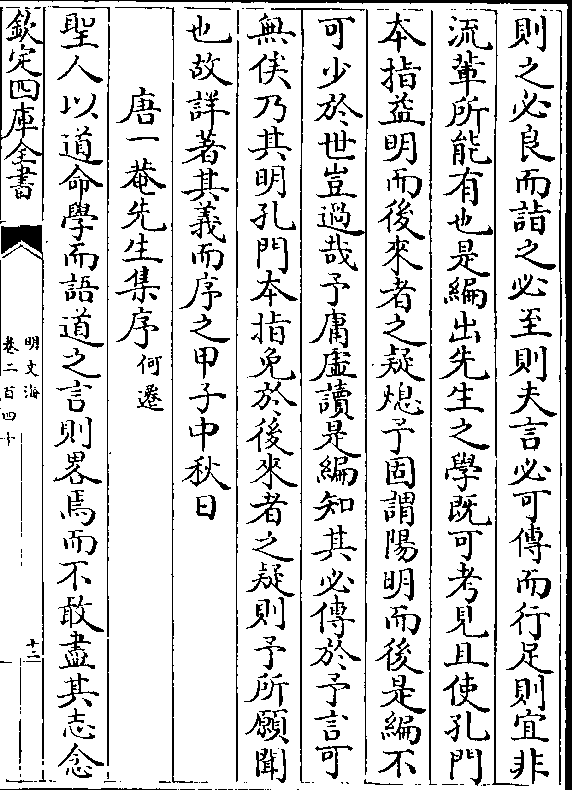 則之必良而詣之必至則夫言必可傳而行足則宜非
流輩所能有也是編出先生之學既可考見且使孔門
本指益明而後來者之疑熄予固謂陽明而後是編不
可少於世豈過哉予庸虚讀是編知其必傳於予言可
無俟乃其明孔門本指免於後來者之疑則予所願聞
也故詳著其義而序之甲子中秋日
唐一菴先生集序 何遷
聖人以道命學而語道之言則畧焉而不敢盡其志念
欽定四庫全書
明文海
卷二百四十
十二